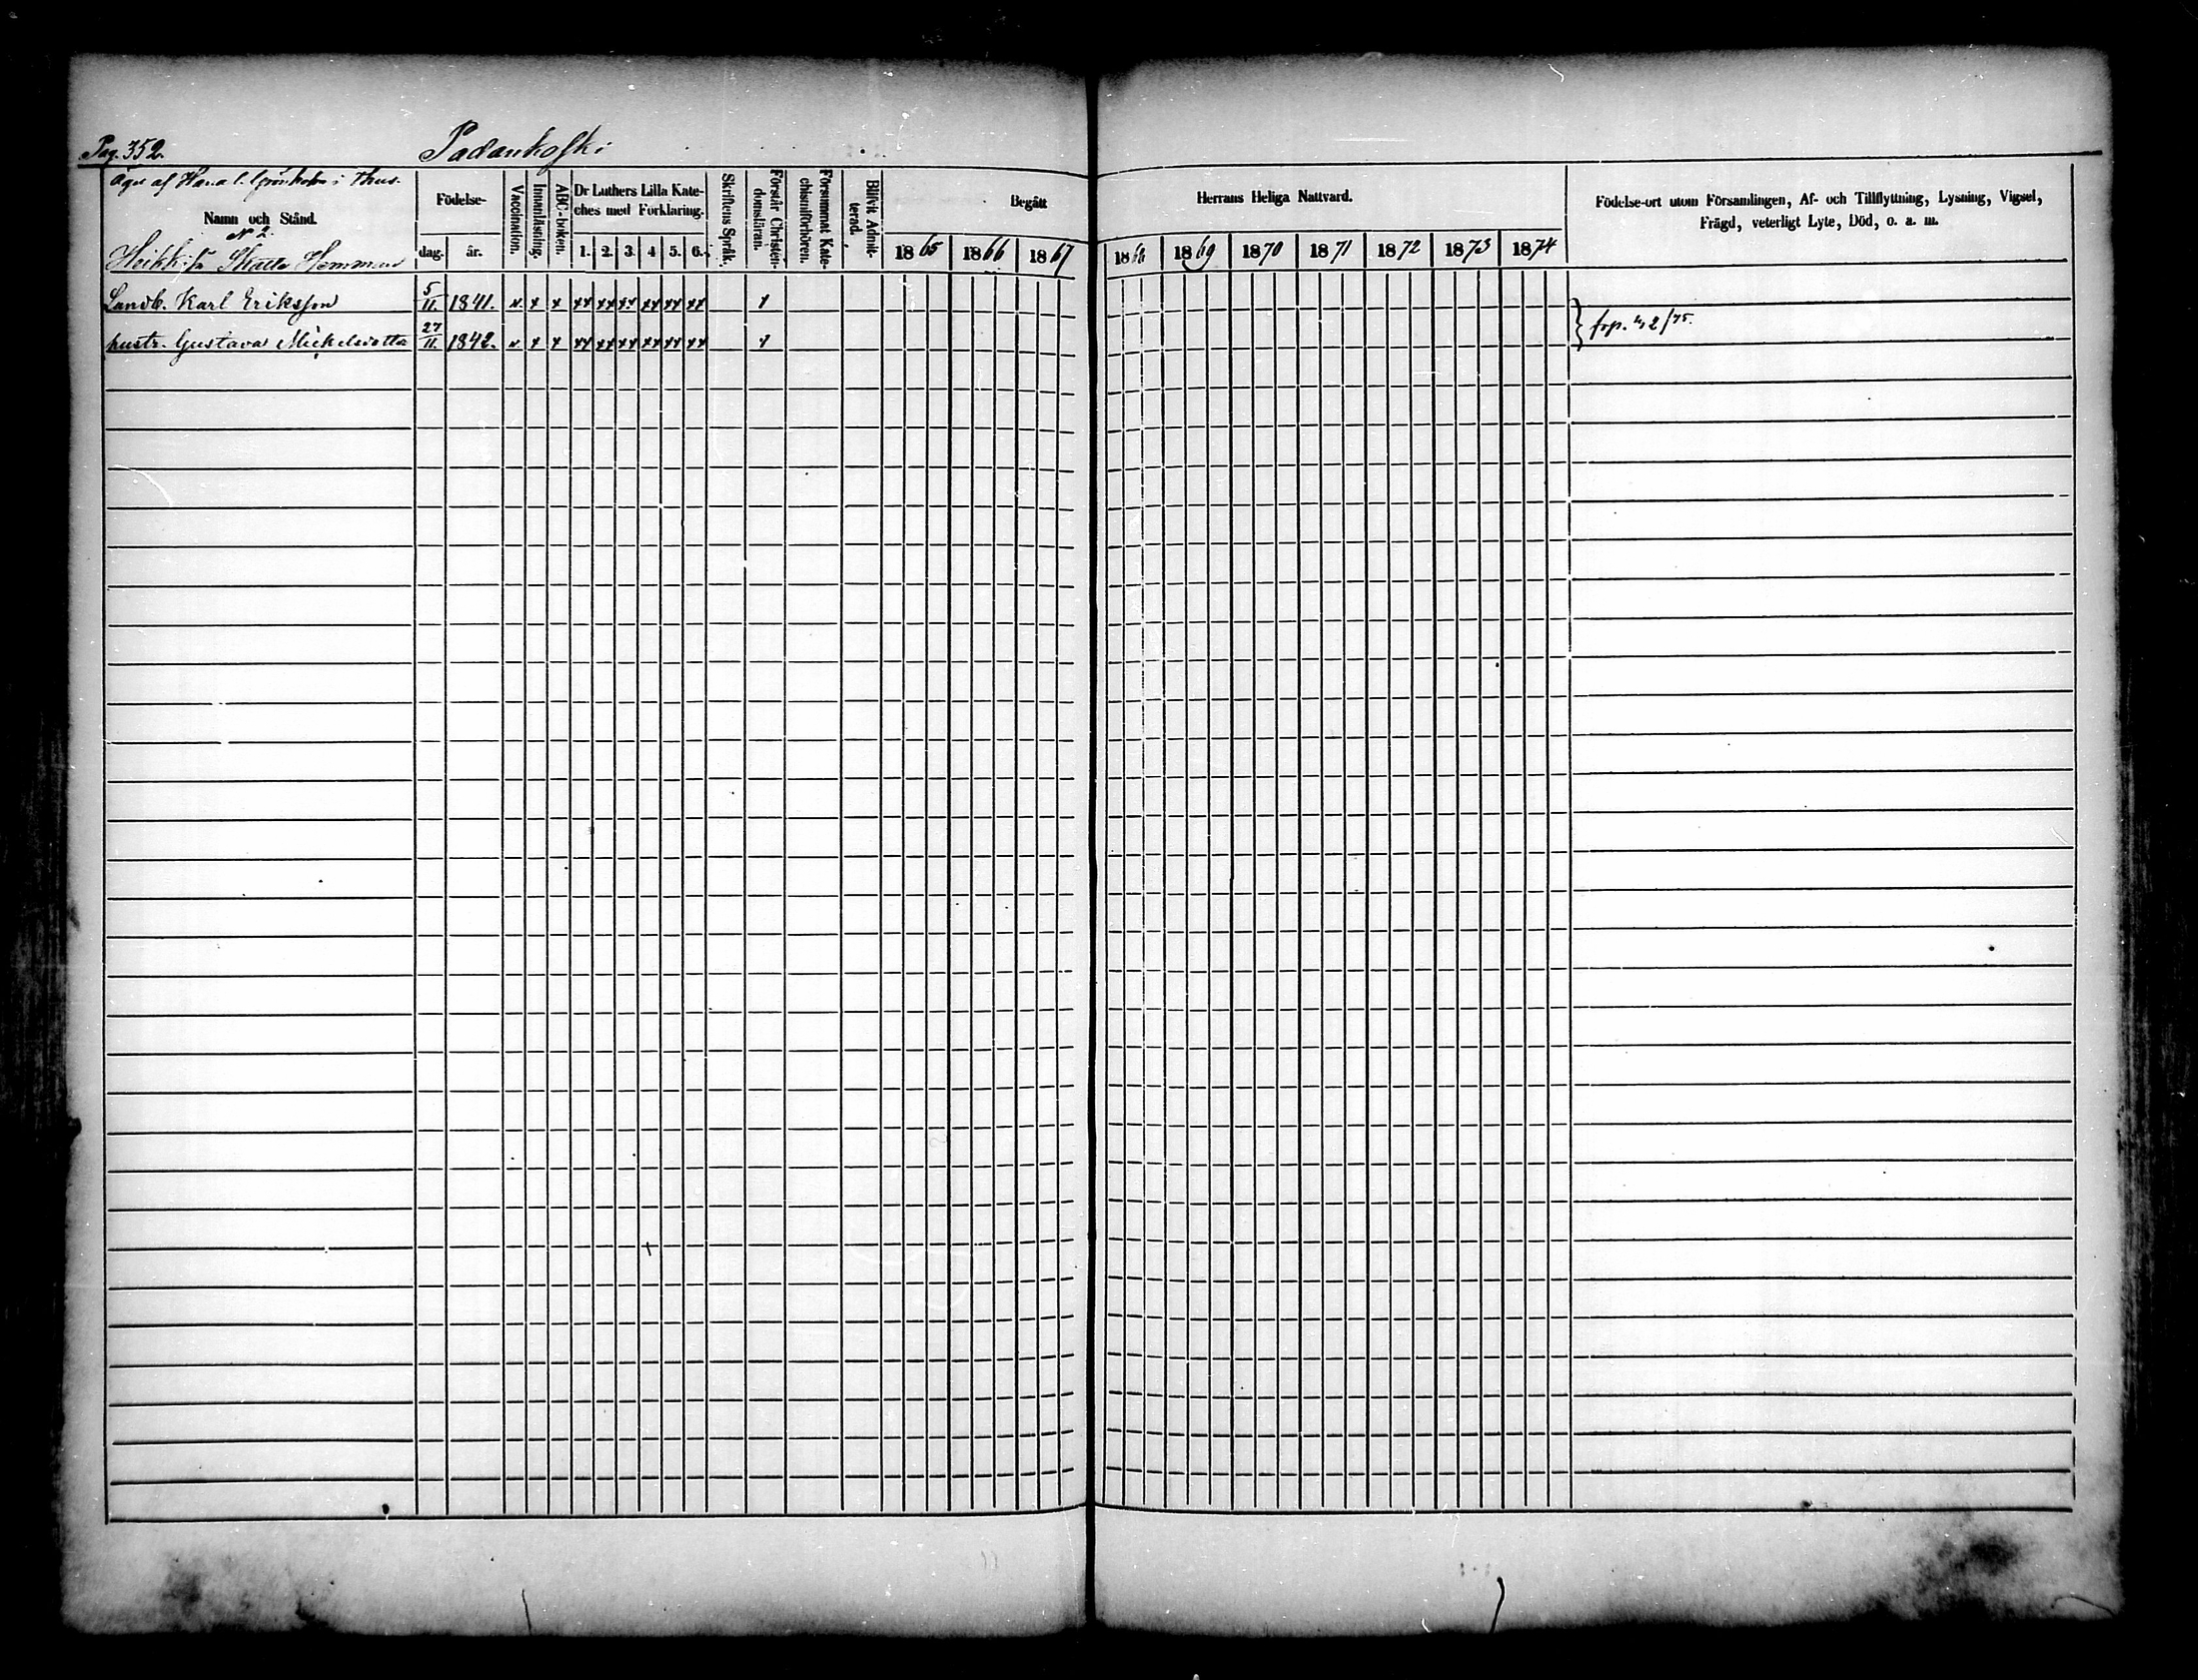 Pag. 352. Padankoski
äges af Hanal. Grönholm i Thus.
Namn och Stånd.
N 2.
Heikkilä Skatte Hemman
Födelse-
dag. år.
Vaccination.
Innanläsning.
ABC-boken.
Dr Luthers Lilla Kate-
ches med Förklaring.
1. 2. 3. 4 5. 6.
Skriftens Språk.
Förstår Christen-
domsläran.
Försummat Kate-
chismiförhören.
Blifvit Admit-
terad.
Begått Herrans Heliga Nattvard.
1865 1866 1867 1868 1869 1870 1871 1872 1873 1874
Födelse-ort utom Församlingen, Af- och Tillflyttning, Lysning, Vigsel,
Frägd, veterligt Lyte, Död, o. a. m.
Landb. Karl Eriksson 5/11. 1841. v x x xx xx xx xx xx xx x
hustr. Gustava Michelsdotter 27/11. 1842. v x x xx xx xx xx xx xx x